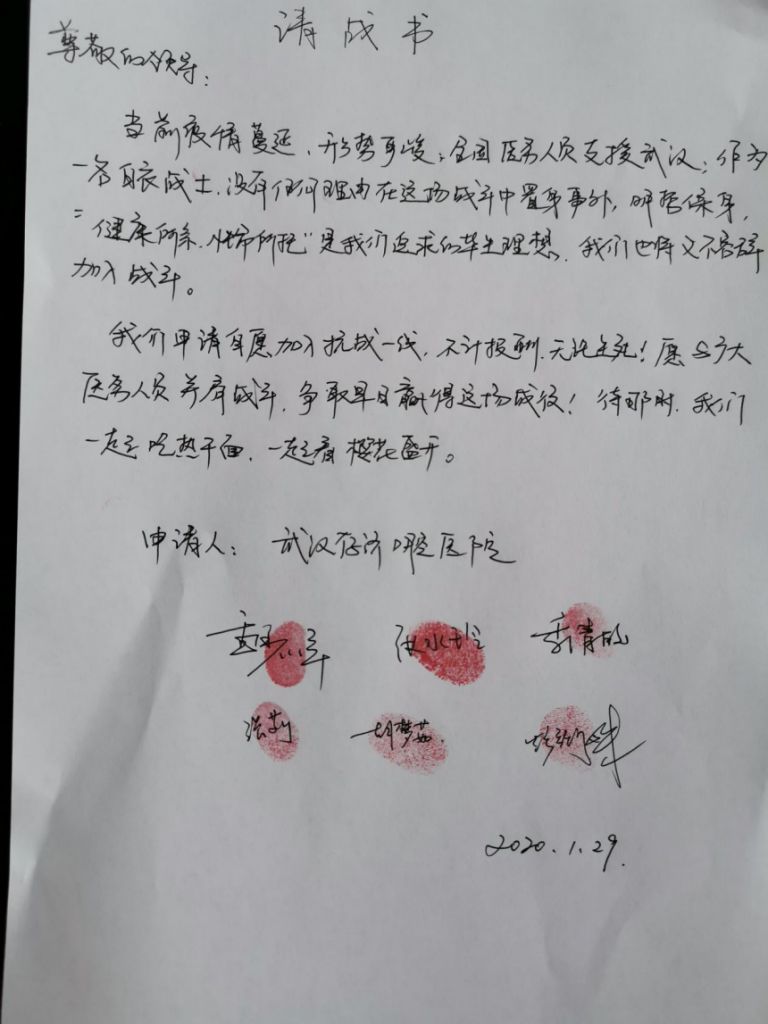 请战书
尊敬的领导：
当前疫情蔓延，形势严峻，全国医务人员支援武汉，作为
一名白衣战士，没有任何理由在这场战斗中置身事外，明哲保身，
“健康所系，性命所托”是我们追求的毕生理想，我们也将义不容辞
加入战斗。
我们申请自愿加入抗战一线，不计报酬，无论生死！愿与广大
医务人员并肩战斗，争取早日赢得这场战役！待那时，我们
一起吃热干面，一起看樱花盛开。
申请人： 武汉存济口腔医院
张莉 胡梦茹
2020.1.29.